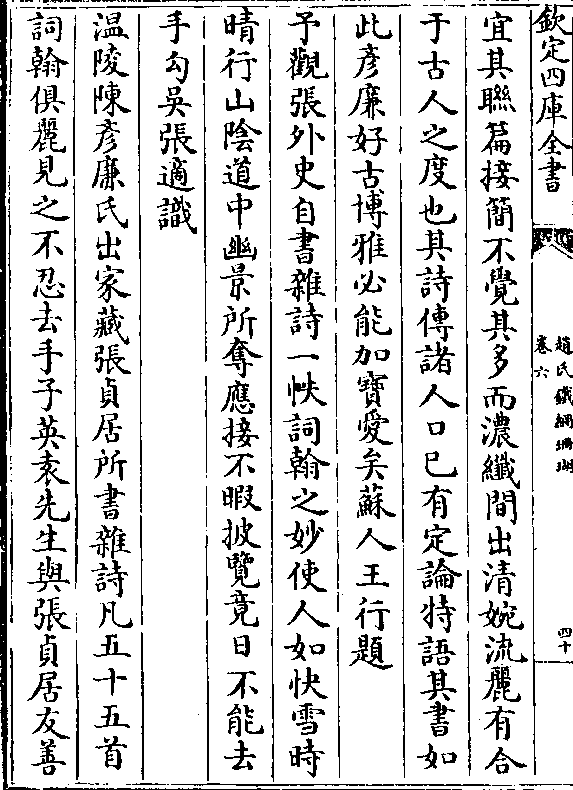 欽定四庫全書
趙氏鐵網珊瑚
卷六
四十
宜其聯篇接簡不覺其多而濃纖間出清婉流麗有合
于古人之度也其詩傳諸人口已有定論特語其書如
此彦廉好古博雅必能加寶愛矣蘇人王行題
予觀張外史自書雜詩一帙詞翰之妙使人如快雪時
晴行山陰道中幽景所奪應接不暇披覽竟日不能去
手勾吳張適識
温陵陳彦廉氏出家藏張貞居所書雜詩凡五十五首
詞翰俱麗見之不忍去手子英袁先生與張貞居友善